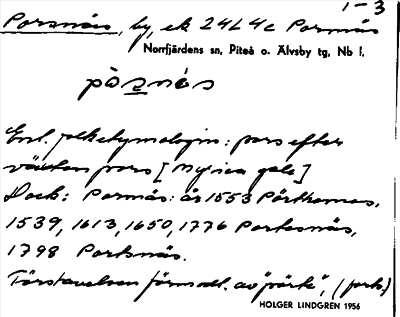 1-3
Porsnäs, by, ek 24L4c Porsnäs
Norrfjärdens sn, Piteå o. Älvsby tg, Nb l.
pòsnä́s
Enl. folketymologin: pors efter
växten pors [Myrica gale]
Dock: Porsnäs: år 1553 Pörkenäs,
1539, 1613, 1650, 1776 Porkesnäs,
1798 Porksnäs.
Förstavelsen förmodl. av "pörk", (pork)
HOLGER LINDGREN 1956